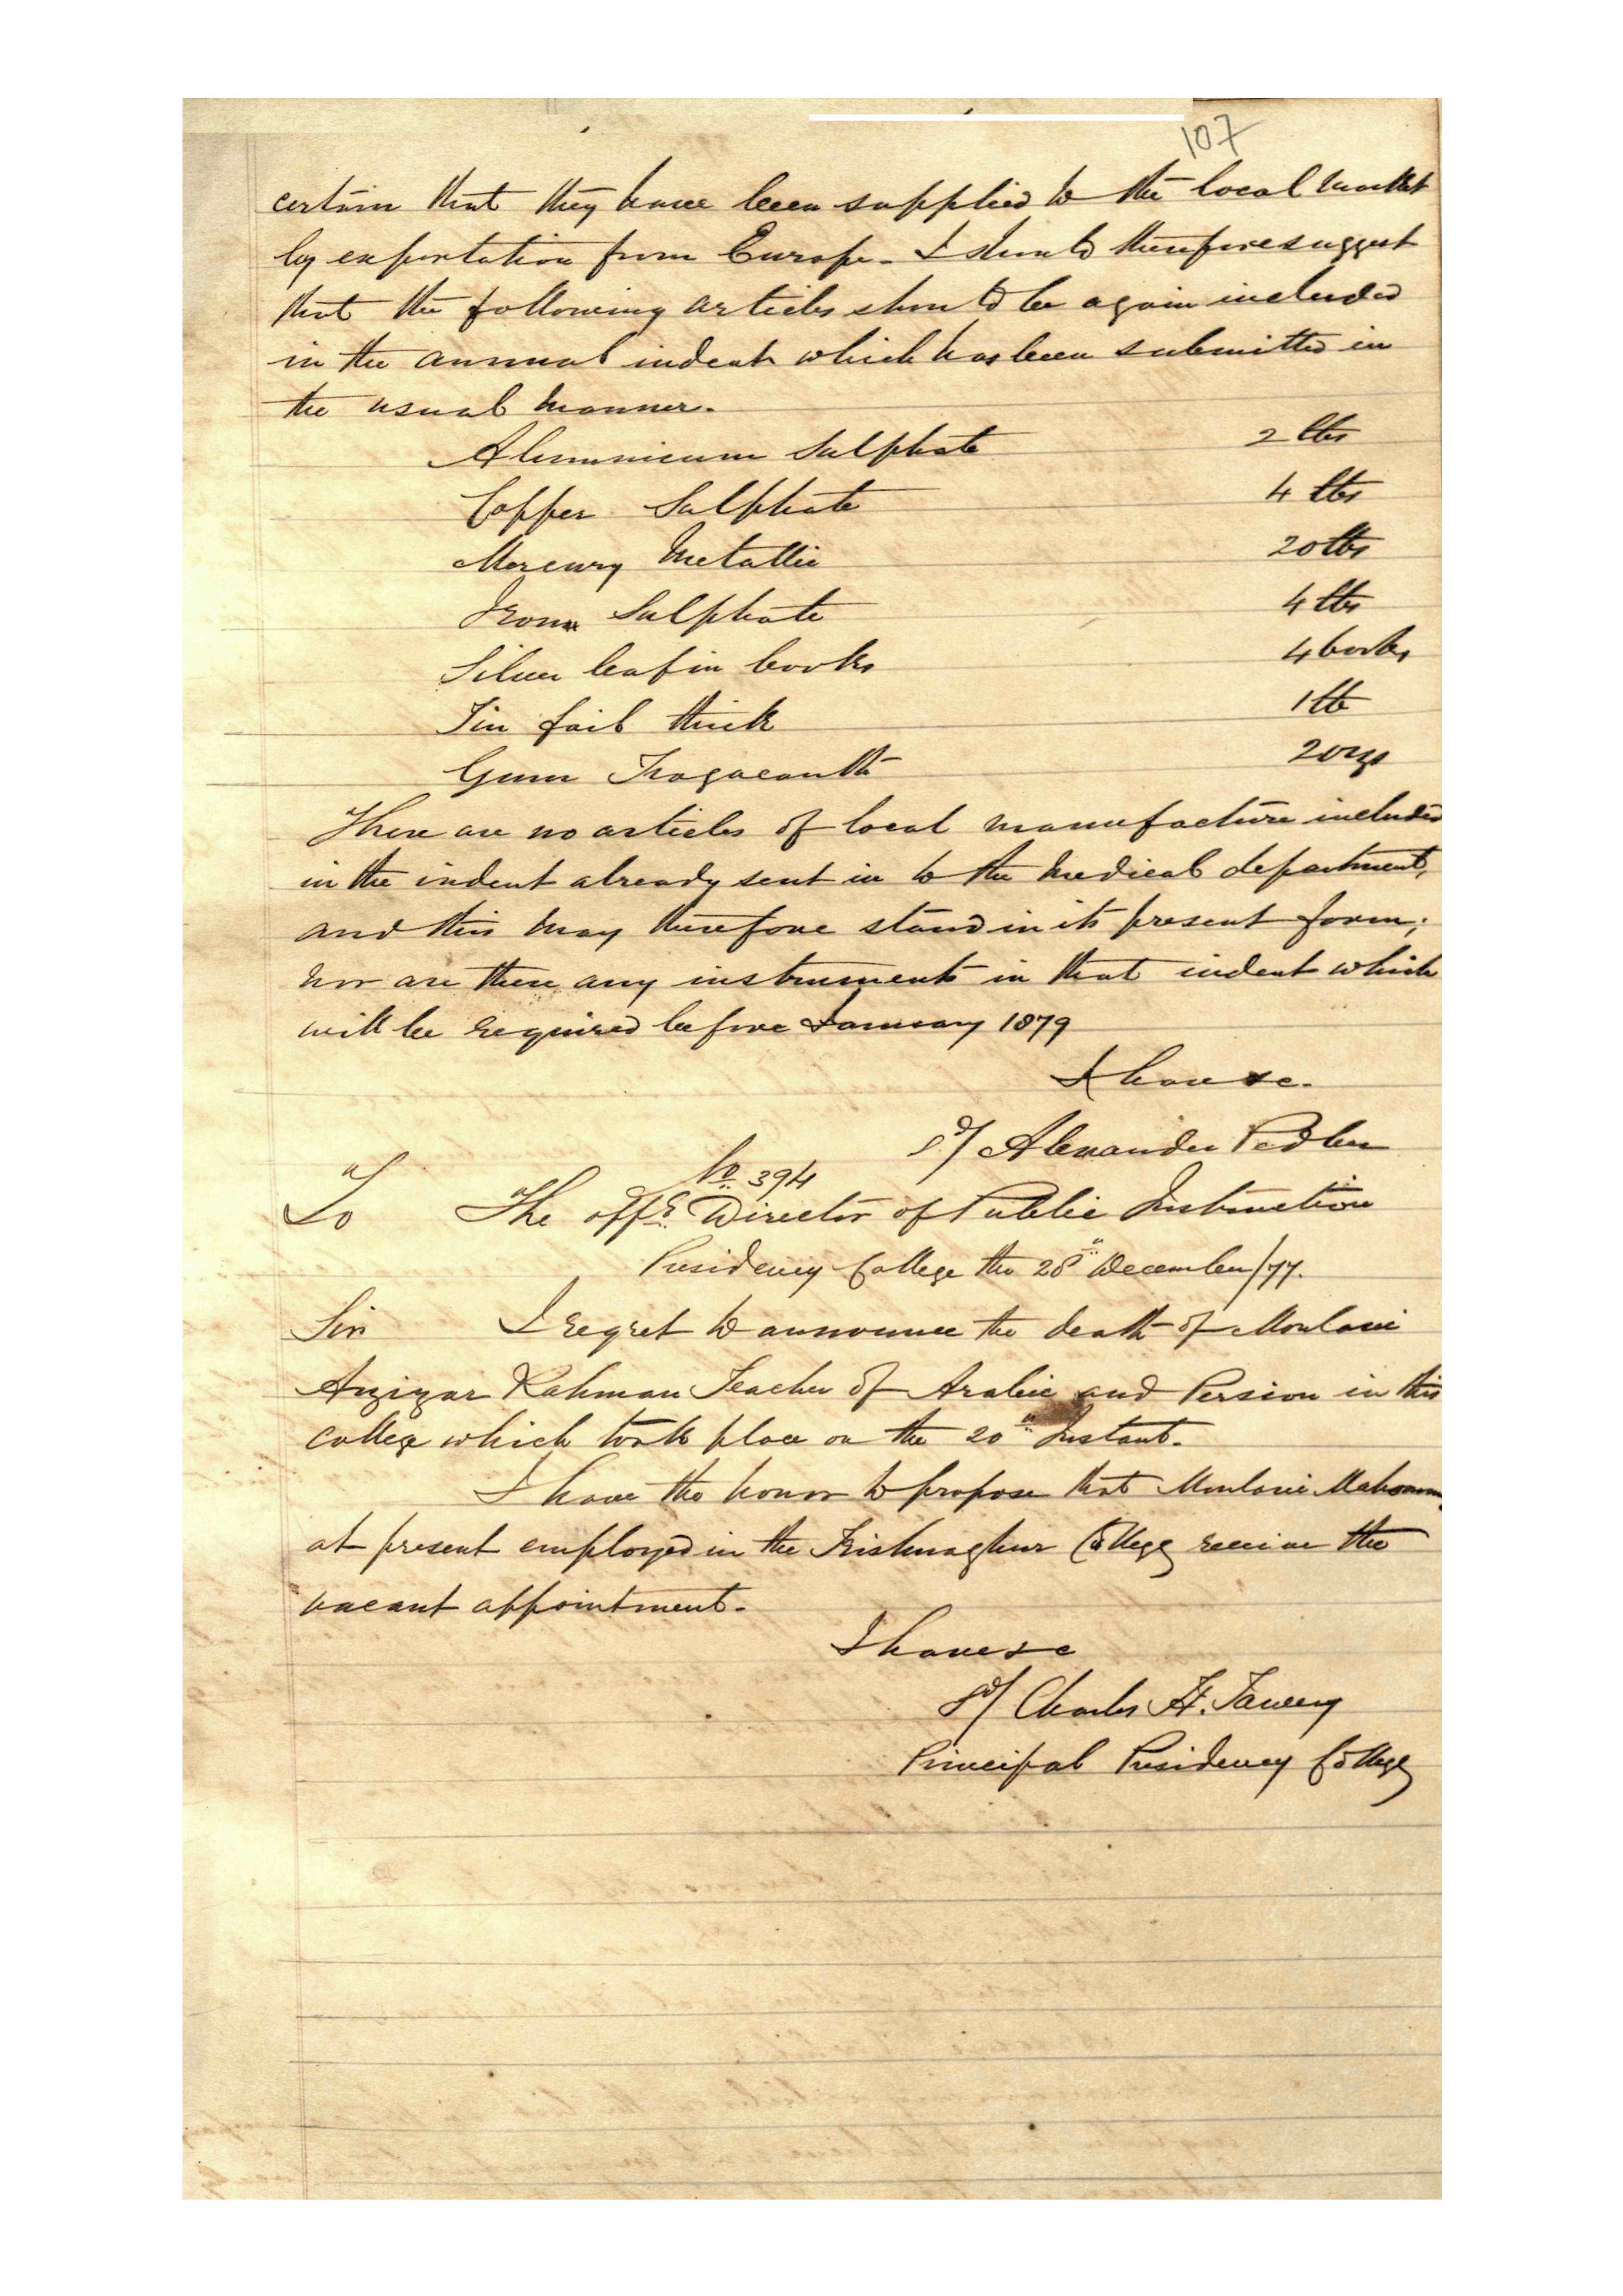 107
certain that they have been supplied to the local market
by exportation from Europe. I should therefore suggest
that the following articles should be again included
in the annual indent which has been submitted in
the usual manner.
Aluminium Sulphate 2 lbs
Copper Sulphate 4 lbs
Mercury Metallic 20 lbs
Iron Sulphate 4 lbs
Silver leaf in books 4 books
Tin foil thick 1 lb
Gum Tragacanth 2 ozs
There are no articles of local manufacture included
in the indent already sent in to the Medical department,
and this may therefore stand in its present form;
nor are there any instruments in that indent which
will be required before January 1879
I have &c.
Sd/ Alexander Pedler
No. 394
To The offg. Director of Public Instruction
Presidency College the 28th December/77.
Sir I regret to announce the death of Moulavi
Azizar Rahman Teacher of Arabic and Persion in this
College which took place on the 20th Instant.
I have the honor to propose that Moulavi
at present employed in the Krishnaghur College receive the
vacant appointment.
I have &c
Sd/ Charles H. Tawney
Principal Presidency College